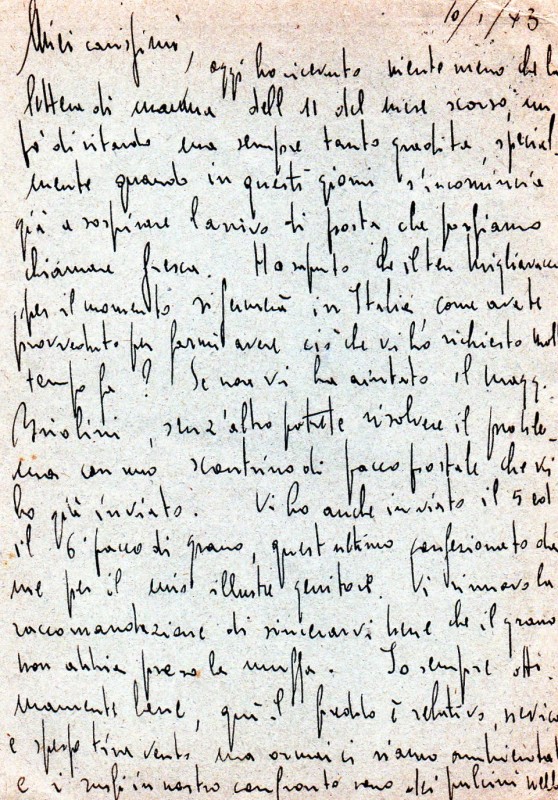 10/1/43
Miei carissimi,
oggi ho ricevuto niente meno che la
lettera di mamma dell'11 del mese scorso, un
pò di ritardo ma sempre tanto gradita, special
mente quando in questi giorni s'incomincia
già a sospirare l'arrivo di posta che possiamo
chiamare fresca. Ho saputo che il ten Migliavacca
per il momento si fermerà in Italia come avete
provveduto per farmi avere ciò che vi ho richiesto molt
tempo fa? Se non vi ha aiutato il magg.
senz'altro potrete risolvere il proble-
ma con uno scontrino di pacco postale che vi
ho già inviato. Vi ho anche inviato il 5 ed
il 6° pacco di grano, quest'ultimo confezionato da
me per il mio illustre genitore. Vi rinnovo la
raccomandazione di sincerarvi bene che il grano
non abbia preso la muffa. Io sempre otti-
mamente bene, qui il freddo è relativo, nevica
e spesso tira vento ma ormai ci siamo ambientat
e i russi in nostro confronto sono dei pulcini nell